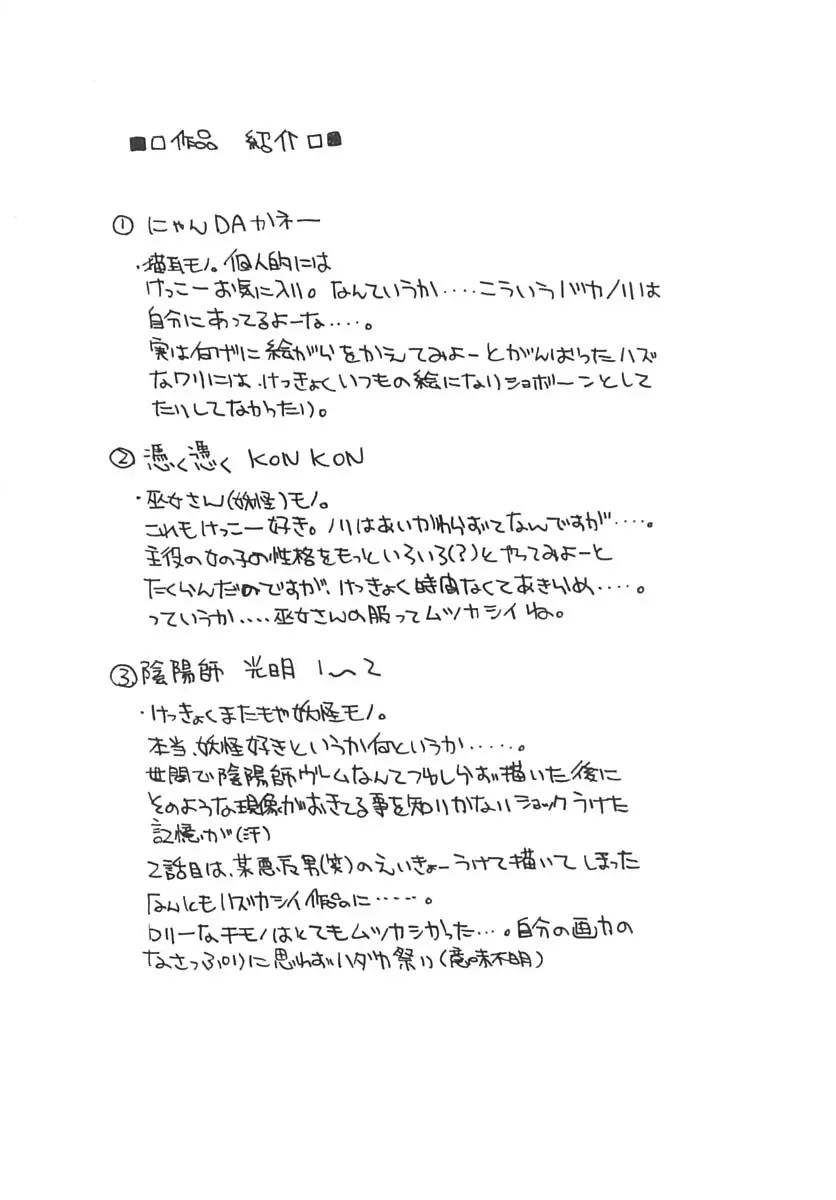 ■□作品 紹介□■
① にゃんDAかネー
・猫耳モノ。個人的には
けっこーお気に入り。なんていうか‥‥こういうバカノリは
自分にあってるよーな‥‥。
実は何げに絵がらをかえてみよーとがんばったハズ
なワリには、けっきょくいつもの絵になりショボーンとして
たりしてなかったり。
② 憑く憑く KON KON
・巫女さん(妖怪)モノ。
これもけっこー好き。ノリはあいかわらずてなんですが‥‥。
主役の女の子の性格をもっといろいろ(?)とやってみよーと
たくらんだのですが、けっきょく時間なくてあきらめ‥‥。
っていうか‥‥巫女さんの服ってムツカシイね。
③ 陰陽師 光明 1〜2
・けっきょくまたもや妖怪モノ。
本当、妖怪好きというか何というか‥‥‥。
世間で陰陽師ヴームなんてつゆしらず描いた後に
そのような現象がおきてる事を知りかなりショックうけた
記憶が(汗)
2話目は、某悪反男(笑)のえいきょーうけて描いてしまった
なんともハズカシイ作品に‥‥‥。
ロリーなキモノはとてもムツカシかった‥‥。自分の画力の
なさっぷりに思わずハダカ祭り(意味不明)